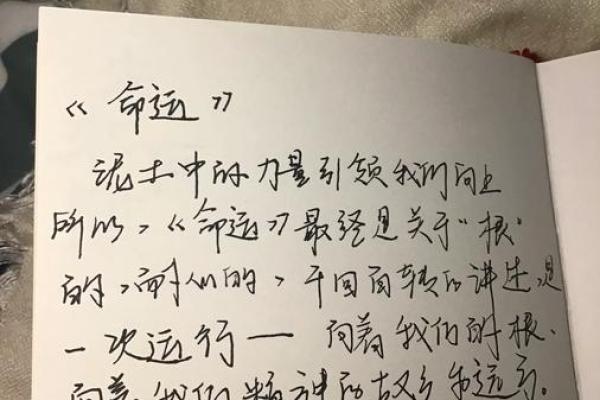 《命运》
泥土中的力量引领我们向上
所以,《命运》最终是关于“根”
的,而我们的,千回百转的讲述,是
一次运行— 向着我们的根、
向着我们精神的故乡和远方。